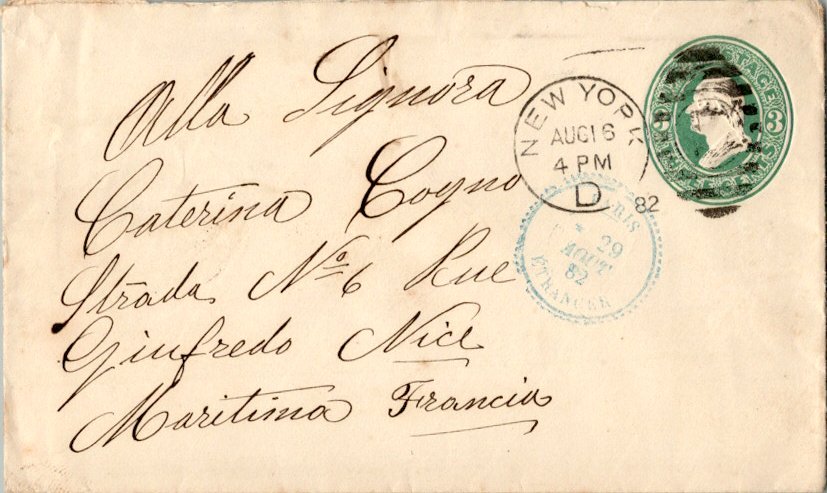 Alla Signora
Caterina Cogno
Strada No 6 Rue
Ginfredo Nice
Maritima Francia
NEW YORK
AUG 16
4 PM
D
82
PARIS
* 29
AOUT
82
ETRANGER
POSTAGE
3
CENTS